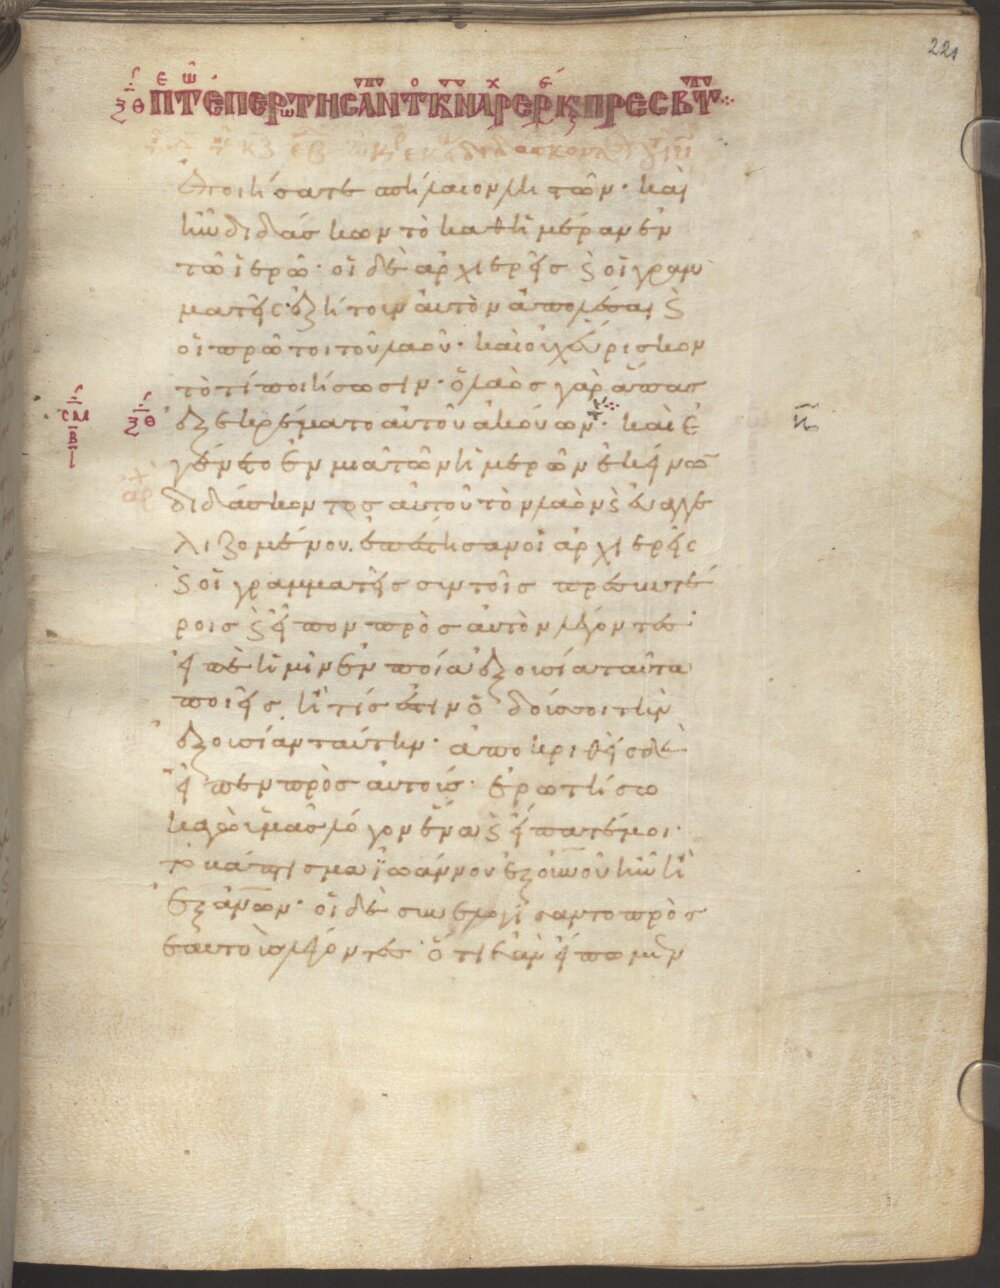 221
ξθ ΠΤ ΕΠΕΡωΤΗС ΑΝΤ ΚΝ ΑΡ ΕΡ Κ ΠΡΕСΒΤ
ἐποιήσατε σπήλαιον ληστῶν· καὶ
ἦν διδάσκων τὸ καθημέραν ἐν
τῶ ἱερῶ· οἱ δὲ ἀρχιερῆς ϗ οἱ γραμ
ματῆς ἐζήτουν αὐτὸν ἀπολέσαι ϗ
οἱ πρῶτοι τοῦ λαοῦ· καὶ οὐχ εὕρισκον
τὸ τί ποιήσωσιν· ὁ λαὸς γὰρ ἅπας
ξθ ἐξεκρέματο αὐτοῦ ἀκούων· καὶ ἐ
γένετο ἐν μιᾶ τῶν ἡμερῶν ἐκείνων
διδάσκοντος αὐτοῦ τὸν λαὸν ϗ εὐαγγε
λιζομένου. ἐπέστησαν οἱ ἀρχιερεῖς
ϗ οἱ γραμματεῖς σὺν τοῖς πρεσβυτέ
ροις ϗ εἶπον πρὸς αὐτὸν λέγοντες·
εἰπὲ ἡμῖν ἐν ποία ἐξουσία ταῦτα
ποιεῖς ἢ τίς ἐστιν ὁ δούς σοι τὴν
ἐξουσίαν ταύτην· ἀποκριθεὶς δὲ
εἶπεν πρὸς αὐτούς· ἐρωτήσω
καγὼ ὑμᾶς λόγον ἕνα ϗ εἴπατέ μοι·
τὸ βάπτισμα ἰωάννου ἐξ οὐνοῦ ἦν ἢ
ἐξ ἀνων· οἱ δὲ συνελογίσαντο πρὸς
ἑαυτοὺς λέγοντες· ὅτι ἐὰν εἴπωμεν